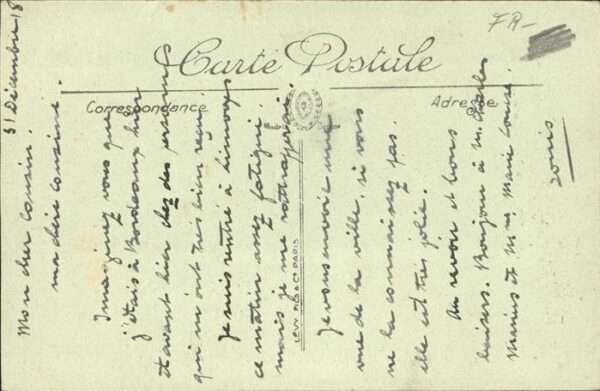 FR-
Carte Postale
Correspondance
Adresse
LEVY FILS & Cie PARIS
31 Décembre 18
Mon cher cousin
ma chère cousine.
Imaginez vous que
j'étais à Bordeaux hier
et avant hier chez des personnes
qui m'ont très bien reçu.
Je suis rentré à Limoges
ce matin assez fatigué
mais je me rattraperai.
Je vous envoie une
vue de la ville, si vous
ne la connaissez pas.
elle est très jolie.
Au revoir et bons
baisers. Bonjour à M. Charles
Marius et Mme Marie Louise.
Louis